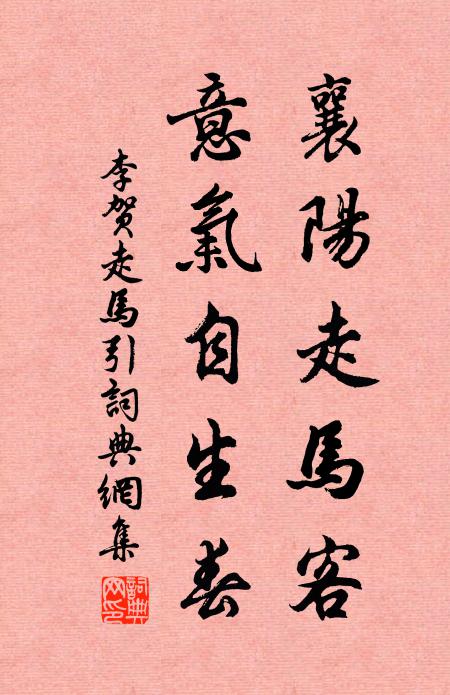 襄陽走馬客
意氣自生春
李賀走馬引詞典網集
詞典
網印